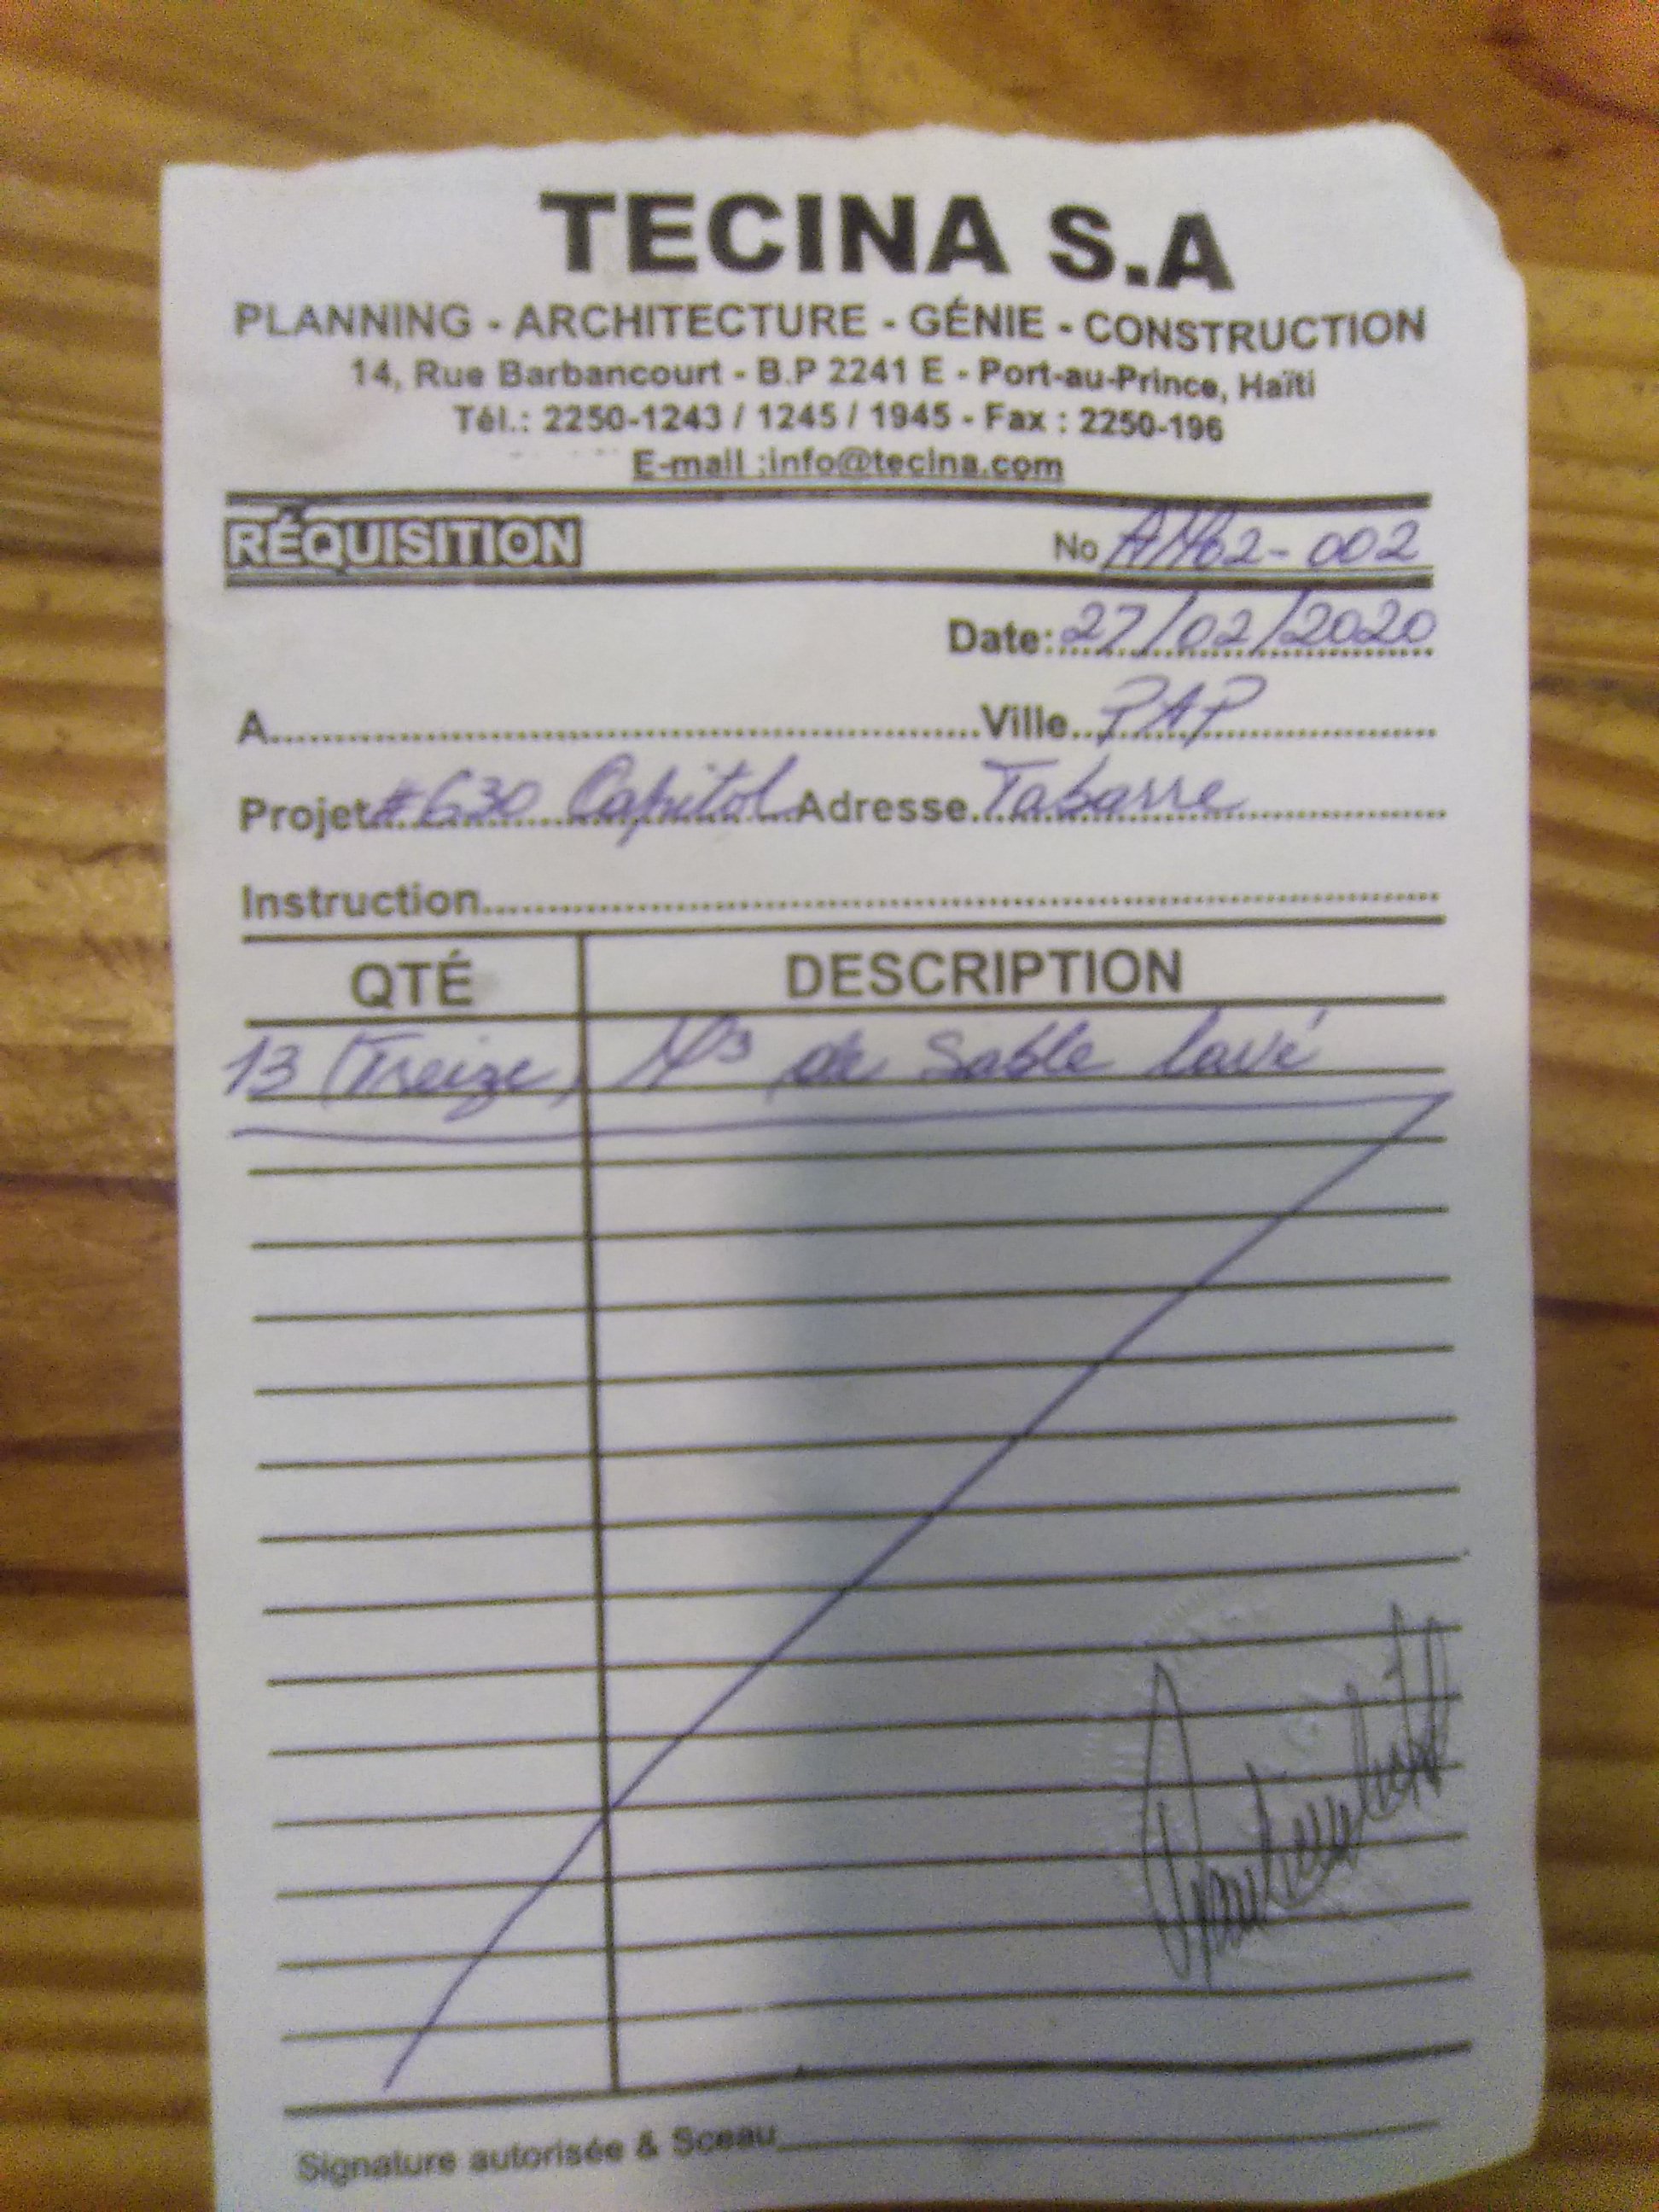 TECINA S.A
PLANNING - ARCHITECTURE - GÉNIE - CONSTRUCTION
14, Rue Barbancourt - B.P 2241 E - Port-au-Prince, Haïti
Tél.: 2250-1243 / 1245 / 1945 - Fax : 2250-196
E-mail :info@tecina.com
RÉQUISITION No 002
Date: 27/02/2020
A Ville PAP
Projet #630 Capitol Adresse Tabarre
Instruction
QTÉ DESCRIPTION
13 (Treize) M³ de Sable lavé
Signature autorisée & Sceau